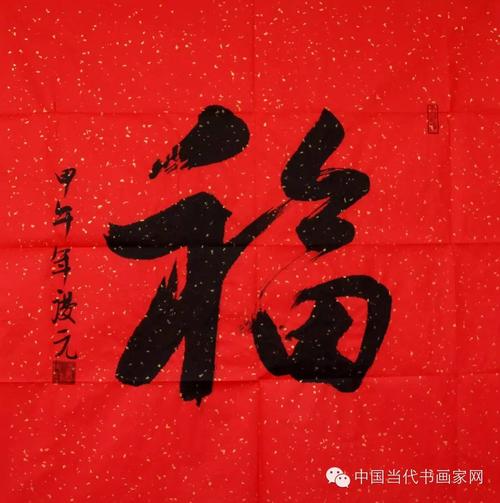 福
甲午年
元
中国当代书画家网